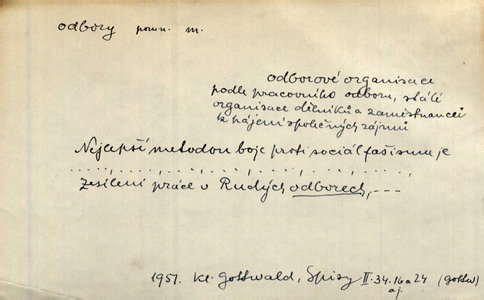 odbory pomn. m.
odborové organisace
podle pracovního odboru, stálé
organisace dělníků a zaměstnanců
k hájení společných zájmů
Nejlepší metodou boje proti sociálfašismu je
....., ....., ....., ....., ....., .....,
zesílení práce v Rudých odborech, ---
1951. Kl. Gottwald, Spisy II. 34. 16 a 24 (Gottw)
aj.